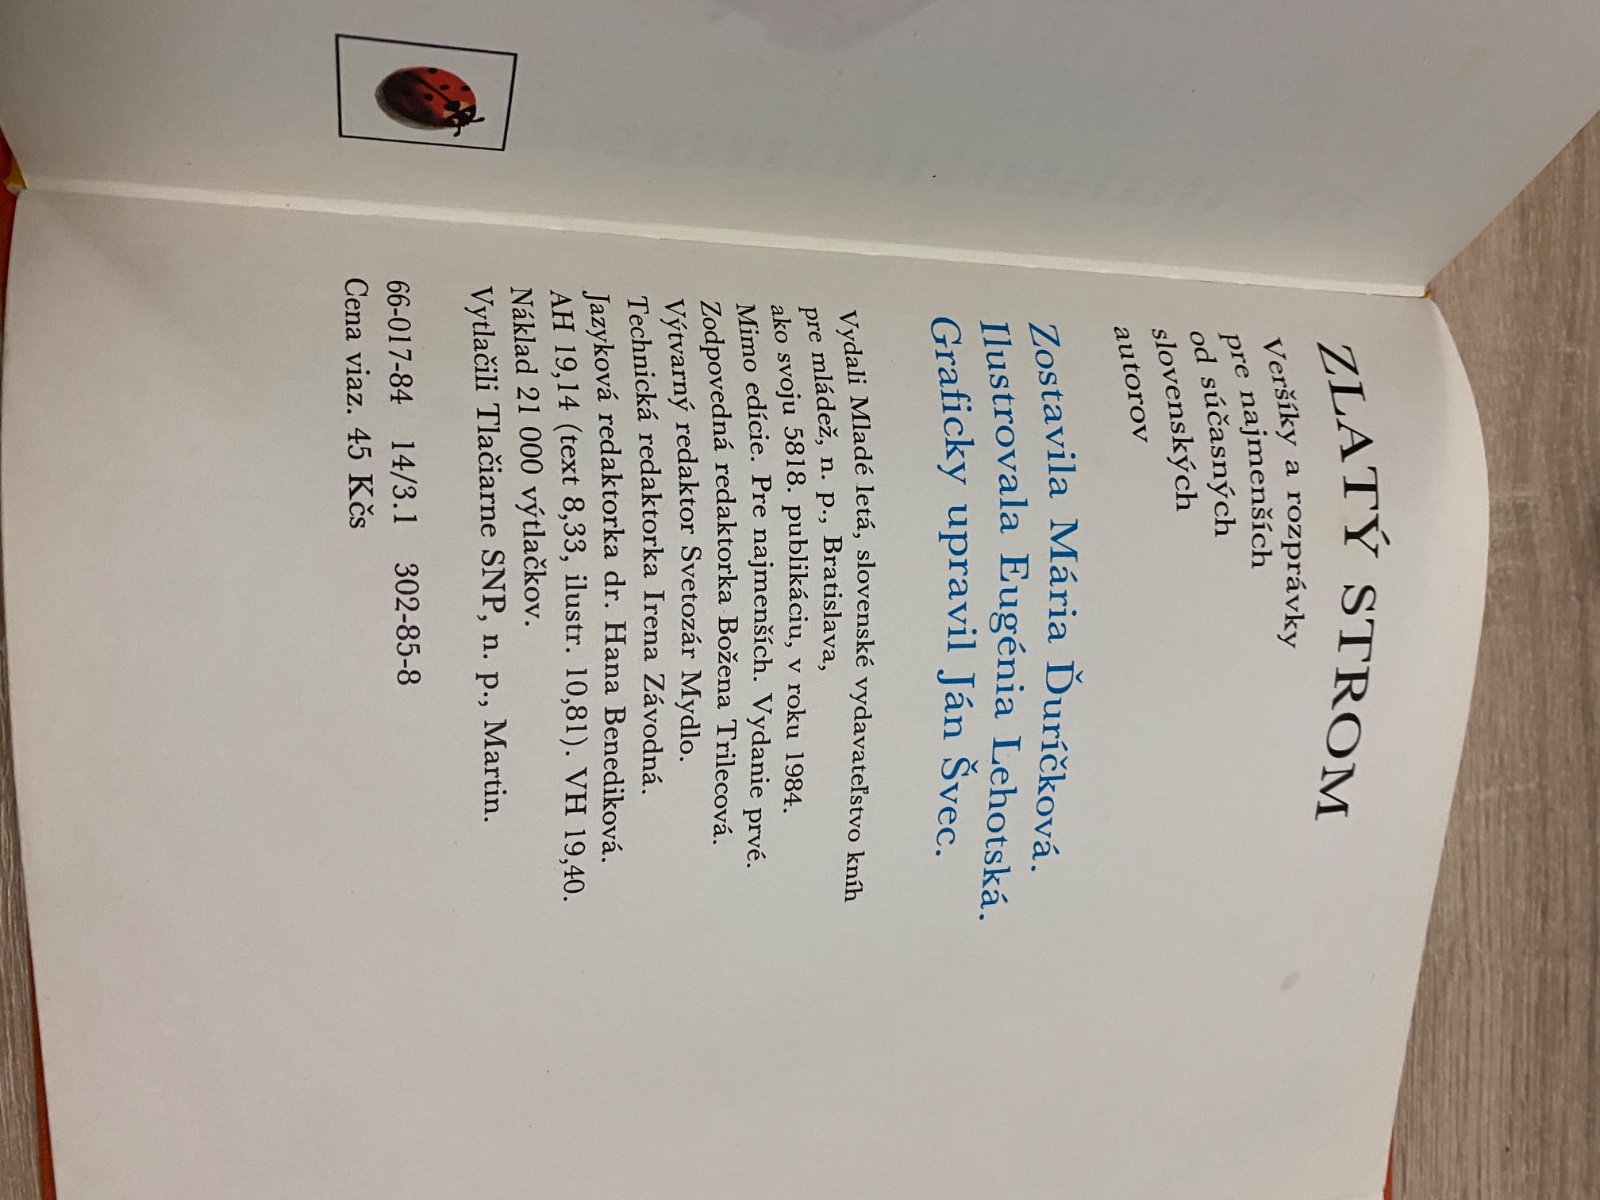 ZLATÝ STROM
Veršíky a rozprávky
pre najmenších
od súčasných
slovenských
autorov
Zostavila Mária Ďuríčková.
Ilustrovala Eugénia Lehotská.
Graficky upravil Ján Švec.
Vydali Mladé letá, slovenské vydavateľstvo kníh
pre mládež, n. p., Bratislava,
ako svoju 5818. publikáciu, v roku 1984.
Mimo edície. Pre najmenších. Vydanie prvé.
Zodpovedná redaktorka Božena Trilecová.
Výtvarný redaktor Svetozár Mydlo.
Technická redaktorka Irena Závodná.
Jazyková redaktorka dr. Hana Benediková.
AH 19,14 (text 8,33, ilustr. 10,81). VH 19,40.
Náklad 21 000 výtlačkov.
Vytlačili Tlačiarne SNP, n. p., Martin.
66-017-84 14/3.1 302-85-8
Cena viaz. 45 Kčs